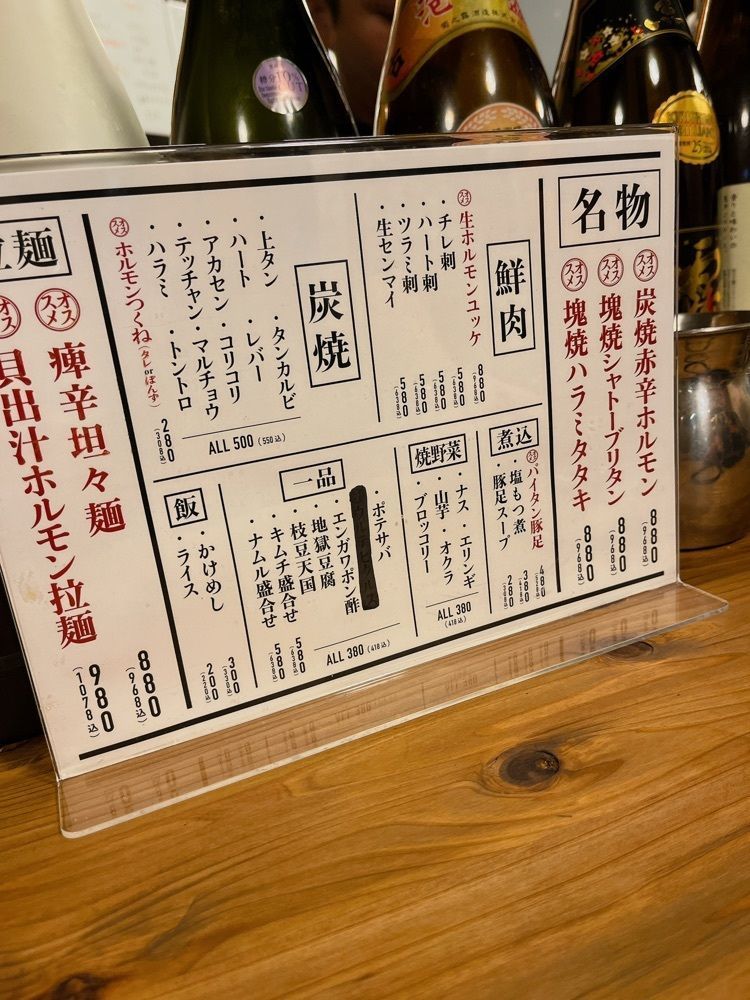 名物
オススメ 炭焼赤辛ホルモン 880(968込)
オススメ 塊焼シャトーブリタン 880(968込)
オススメ 塊焼ハラミタタキ 880(968込)
鮮肉
オススメ 生ホルモンユッケ 880(968込)
・チレ刺 580(638込)
・ハート刺 580(638込)
・ツラミ刺 580(638込)
・生センマイ 580(638込)
炭焼
・上タン ・タンカルビ
・ハート ・レバー
・アカセン ・コリコリ
・テッチャン ・マルチョウ
・ハラミ ・トントロ
ALL 500(550込)
オススメ ホルモンつくね(タレorぽんず) 280(308込)
煮込
オススメ パイタン豚足 480(528込)
・塩もつ煮 380(418込)
・豚足スープ 280
焼野菜
・ナス ・エリンギ
・山芋 ・オクラ
・ブロッコリー
ALL 380(418込)
一品
・ポテサバ
・エンガワポン酢
・地獄豆腐
・枝豆天国
ALL 380(418込)
・キムチ盛合せ 580(638込)
・ナムル盛合せ 580(638込)
飯
・かけめし 300(330込)
・ライス 200(220込)
麺
オススメ 痺辛坦々麺 880(968込)
オス 貝出汁ホルモン拉麺 980(1078込)